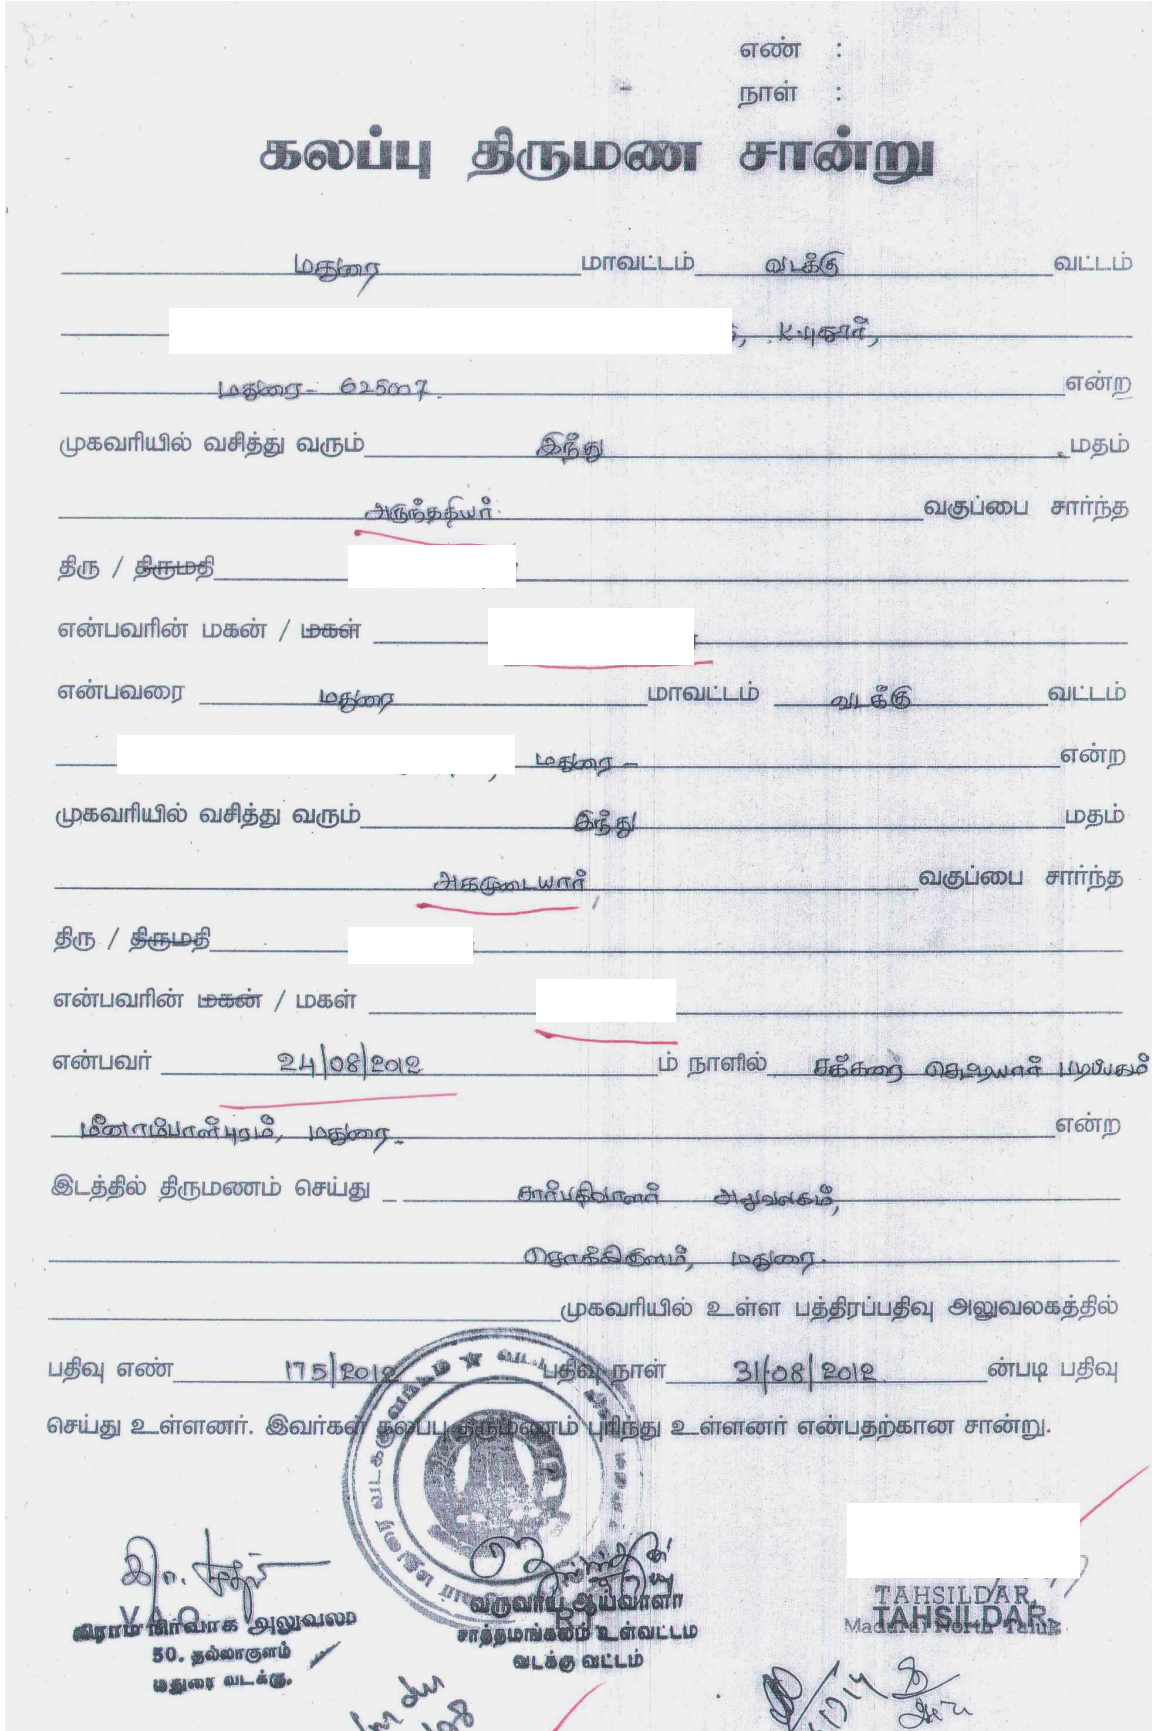 எண் :
நாள் :
கலப்பு திருமண சான்று
மதுரை மாவட்டம் வடக்கு வட்டம்
K.புதூர்,
மதுரை - 625007. என்ற
முகவரியில் வசித்து வரும் இந்து மதம்
அருந்ததியர் வகுப்பை சார்ந்த
திரு / திருமதி
என்பவரின் மகன் / மகள்
என்பவரை மதுரை மாவட்டம் வடக்கு வட்டம்
மதுரை - என்ற
முகவரியில் வசித்து வரும் இந்து மதம்
அகமுடையார் வகுப்பை சார்ந்த
திரு / திருமதி
என்பவரின் மகன் / மகள்
என்பவர் 24/08/2012 ம் நாளில் சக்கரை செட்டியார் படிப்பகம்
மீனாம்பாள்புரம், மதுரை. என்ற
இடத்தில் திருமணம் செய்து சார்பதிவாளர் அலுவலகம்,
சொக்கிகுளம், மதுரை.
முகவரியில் உள்ள பத்திரப்பதிவு அலுவலகத்தில்
பதிவு எண் 175/2012 பதிவு நாள் 31/08/2012 ன்படி பதிவு
செய்து உள்ளனர். இவர்கள் கலப்பு திருமணம் புரிந்து உள்ளனர் என்பதற்கான சான்று.
VAO
கிராம நிர்வாக அலுவலர்
50. தல்லாகுளம்
மதுரை வடக்கு.
வருவாய் ஆய்வாளர்
சாத்தமங்கலம் உள்வட்டம்
வடக்கு வட்டம்
TAHSILDAR,
TAHSILDAR,
Madurai North Taluk